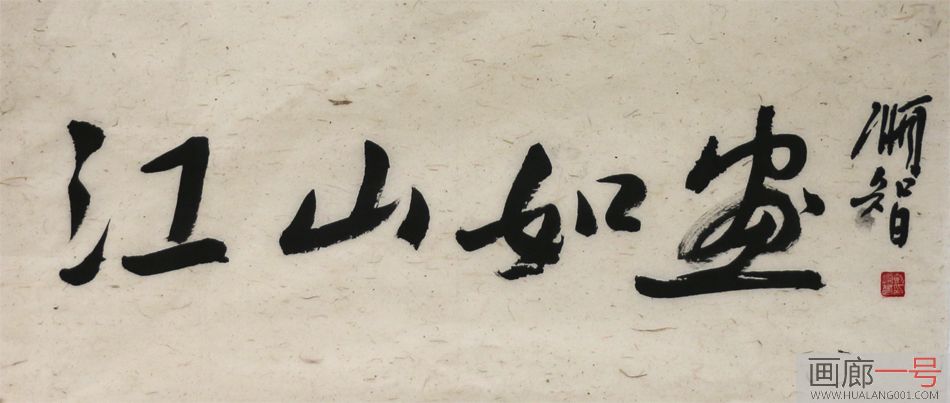 江山如画
画廊一号
WWW.HUALANG001.COM